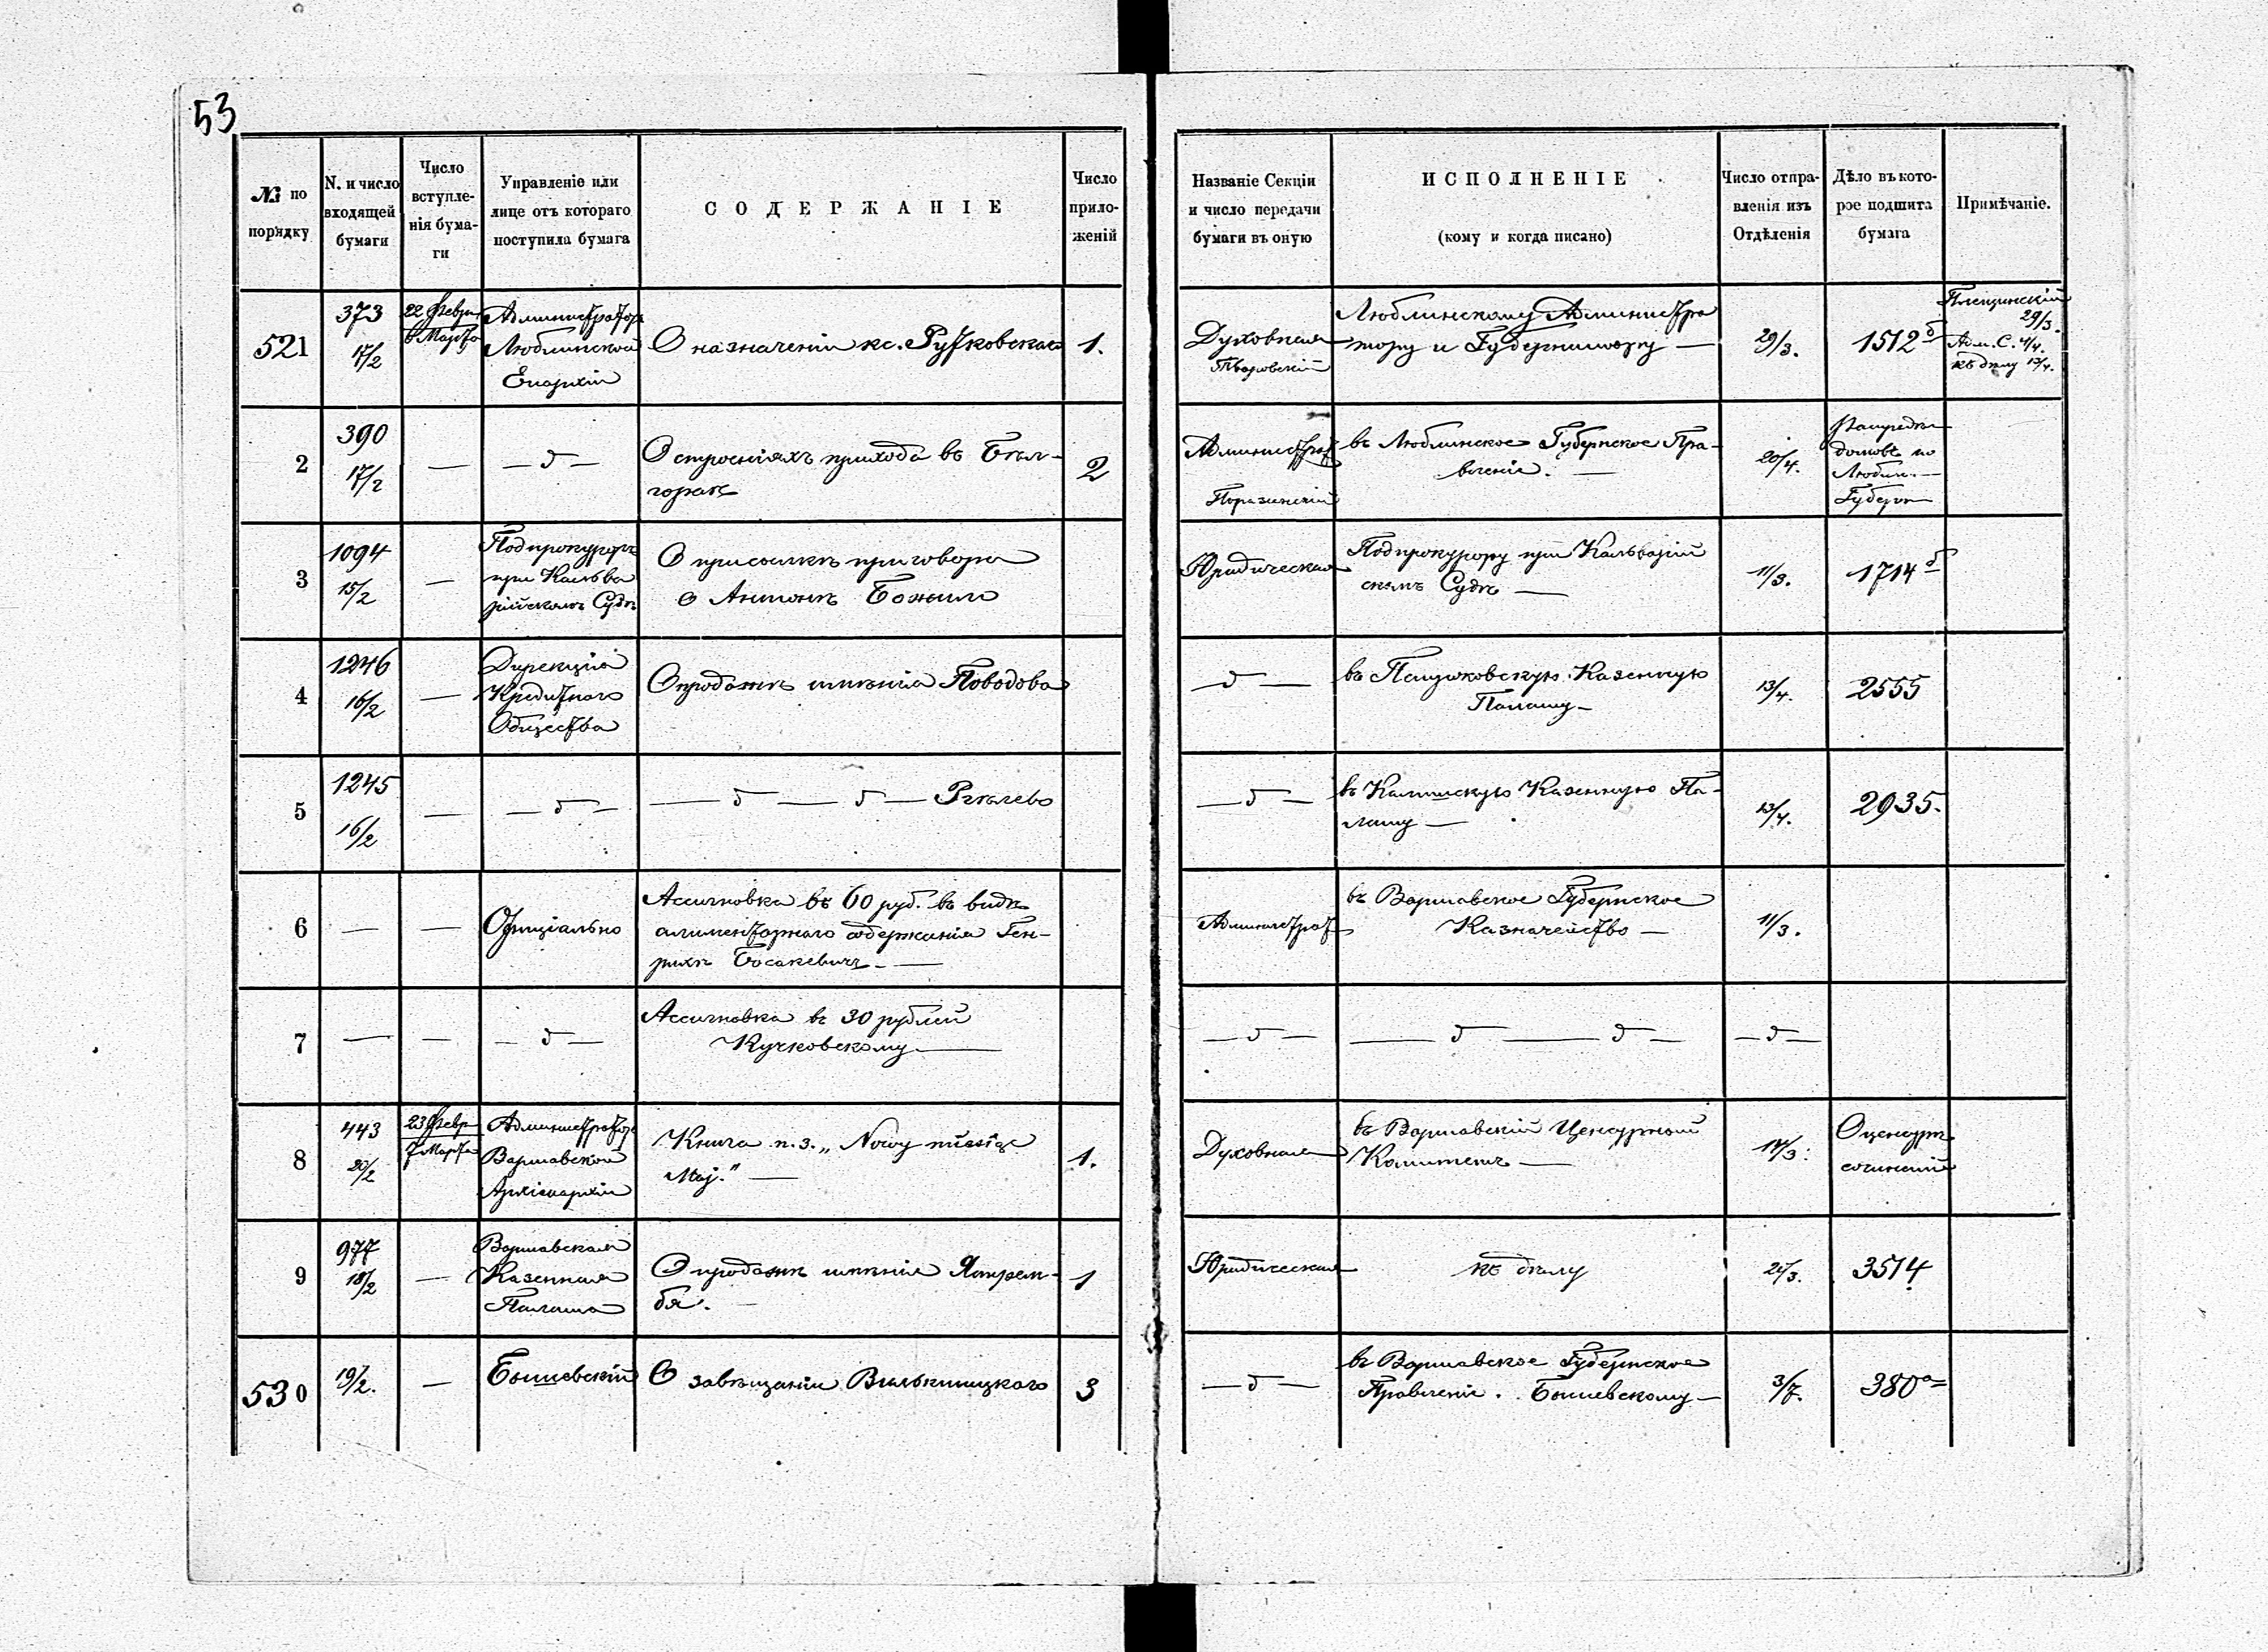 53
№ по порядку
N. и число входящей бумаги
Число вступле-
нія бума-
ги
Управленіе или
лице отъ котораго
поступила бумага
СОДЕРЖАНІЕ
Число
прило-
женій
Названіе Секціи
и число передачи
бумаги въ оную
ИСПОЛНЕНІЕ
(кому и когда писано)
Число отпра-
вленія изъ
Отдѣленія
Дѣло въ кото-
рое подшита
бумага
Примѣчаніе.
521
373
17/2
22 Февр.
6 Марта
Администраторъ
Люблинской
Епархіи
О назначеніи кс. Рутковскаго
1.
Духовная
Люблинскому Администра
тору и Губернатору —
29/3.
1512 б
29/3.
Адм. С. 4/4.
къ дѣлу 13/4.
2
390
17/2
—
— д —
О строеніяхъ прихода въ Бѣл-
гораѣ
2
Администрат
въ Люблинское Губернское Пра-
вленіе. —
20/4.
по
Люблин. —
Губерн
3
1094
15/2
—
Подпрокуроръ
при Кальва
рійскомъ Судѣ
О присылкѣ приговора
о Антонѣ
Юридическая
Подпрокурору при Кальварій
скомъ Судѣ —
11/3.
1714 б
4
1246
16/2
—
Дирекція
Кредитнаго
Общества
О продажѣ имѣнія Поводова
— д —
въ Петроковскую Казенную
Палату —
13/4.
2555
5
1245
16/2
—
— д —
— д — д —
— д —
въ Калишскую Казенную Па-
лату —
13/4.
2935.
6
—
—
Офиціально
Ассигновка въ 60 руб. въ видѣ
алиментарнаго содержанія Ген-
рихѣ Босакевичъ. —
Администрат
въ Варшавское Губернское
Казначейство —
11/3.
7
—
—
— д —
Ассигновка въ 30 рублей
Кучковскому —
— д —
— д — д —
— д —
8
443
20/2
23 Февр
7 Марта
Администраторъ
Варшавской
Архіепархіи
Книга п. з. „Nowy miesiąc
Maj." —
1.
Духовная
въ Варшавскій Цензурный
Комитетъ —
14/3.
О цензурѣ
сочиненій
9
977
18/2
—
Варшавская
Казенная
Палата
О продажѣ имѣнія Ястрем-
бя. —
1
Юридическая
къ дѣлу
21/3.
3514
530
19/2.
—
Бышевскій
О завѣщаніи Вилькицкаго
3
— д —
въ Варшавское Губернское
Правленіе. Бышевскому —
3/7.
380 а